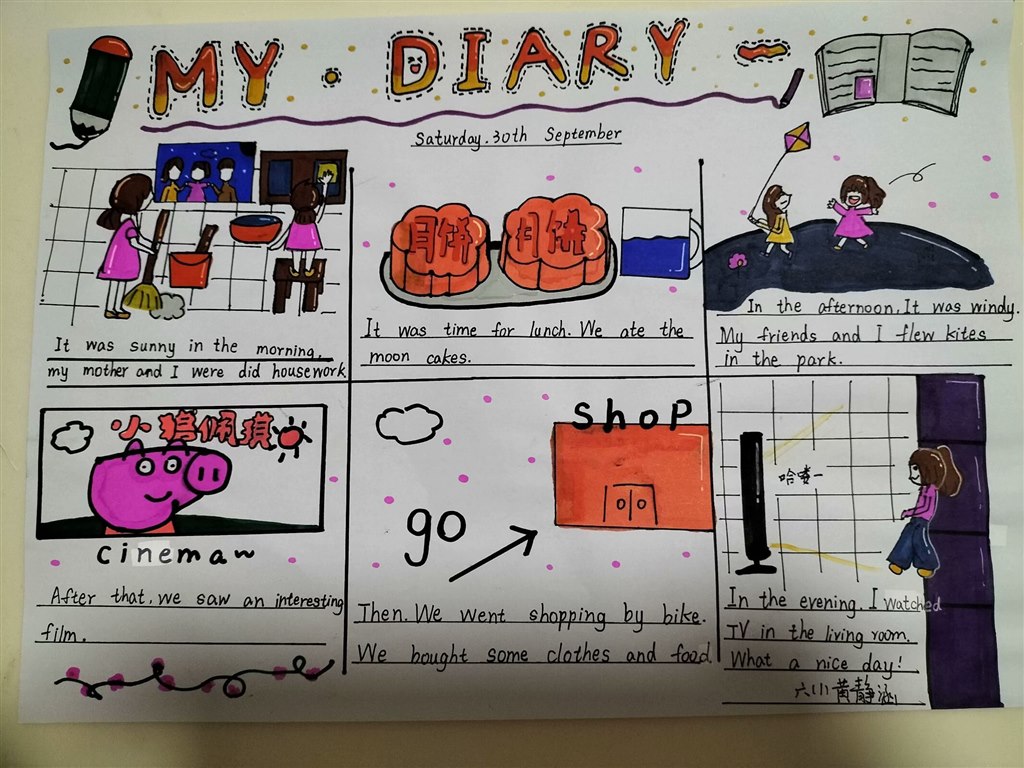 MY DIARY
Saturday. 30th September
It was sunny in the morning,
my mother and I were did housework
月饼 月饼
It was time for lunch. We ate the
moon cakes.
In the afternoon. It was windy.
My friends and I flew kites
in the park.
小猪佩琪
cinema~
After that, we saw an interesting
film.
shop
go
Then. We went shopping by bike.
We bought some clothes and food.
哈喽一
In the evening. I watched
TV in the living room.
What a nice day!
六(1)黄静涵